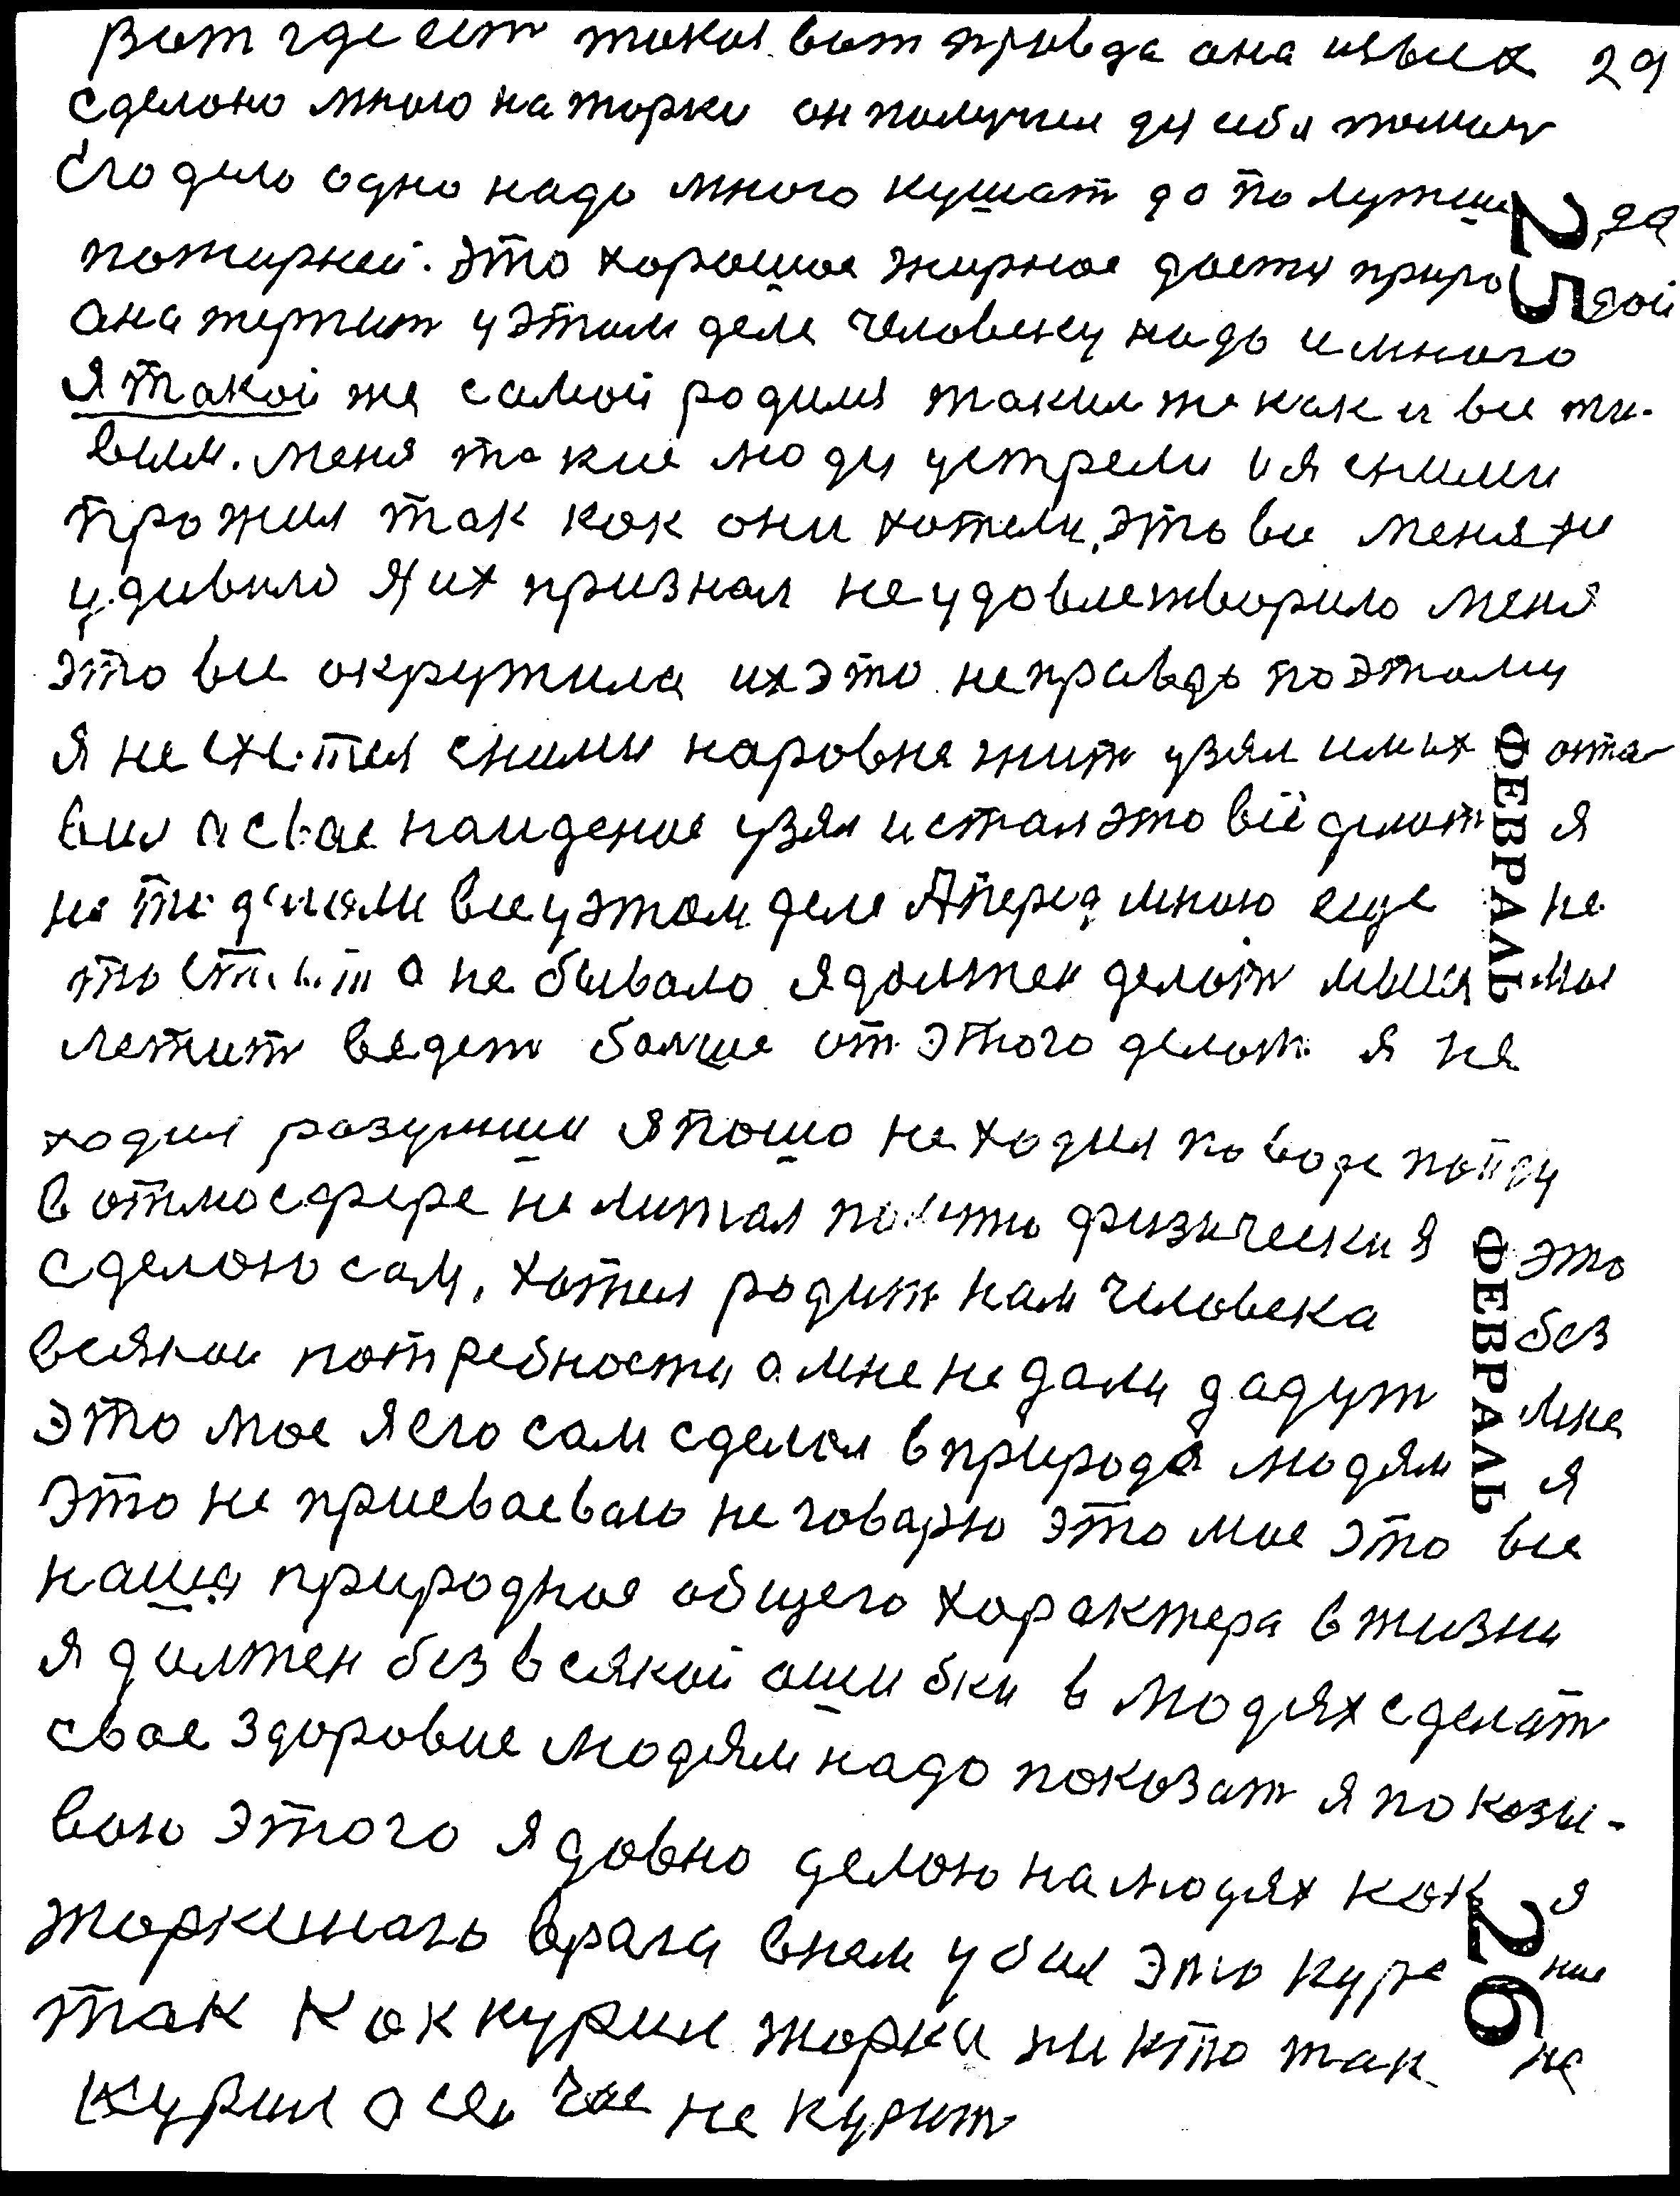 Вот где ест такая вот правда она язвися 29
сделано много на жорки он получил ди себя помощ
Его дило одно надо много кушат до по лутше да
пожирней. Это хорошое жирное дается природой
она тержит у этом деле человеку надо и много
Я такой же самой родился таким же как и все жи-
выим. меня такие люди устрели и я сними
прожил так как они хотели, это все меня не
удивило Я их признал не удовлетворило меня
это все окружила их это неправда поэтому
я не снимы наровне жит узял им их оста-
вил а свое найденое узял и стал это всё делат я
не делали все у этом деле А перед мною еще не
а не бывало я должен делат мыся моя
летит ведет болше от этого делат я не
ходил разувши я пошо не ходил по воде пойду
в отмосфере не литал физически я это
сделаю сам, хотел родит нам человека без
всякои потребности а мне не дали дадут мне
это мое я его сам сделал в природе людям я
это не присваеваю не говарю это мое это все
нашо природное общего характера в жизни
я должен без всякой ошибки в людях сделат
свое здоровие людям надо показат я показы-
ваю этого я давно делаю на людях как я
жоркинаго врага внем убил это куре ние
так как курил жорки ни кто так не
курил а сей час не курит
25
ФЕВРАЛЬ
ФЕВРАЛЬ
26